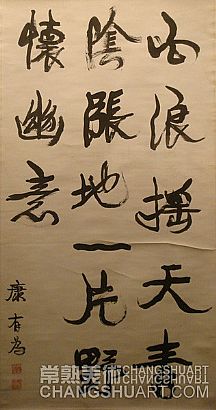 白浪搖天青
陰張地一片野
懷幽意
康有為
常熟美術
CHANGSHUART
CHANGSHUART.COM